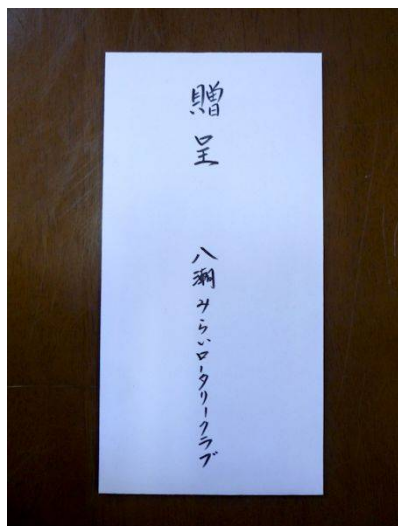 贈呈
八潮みらいロータリークラブ